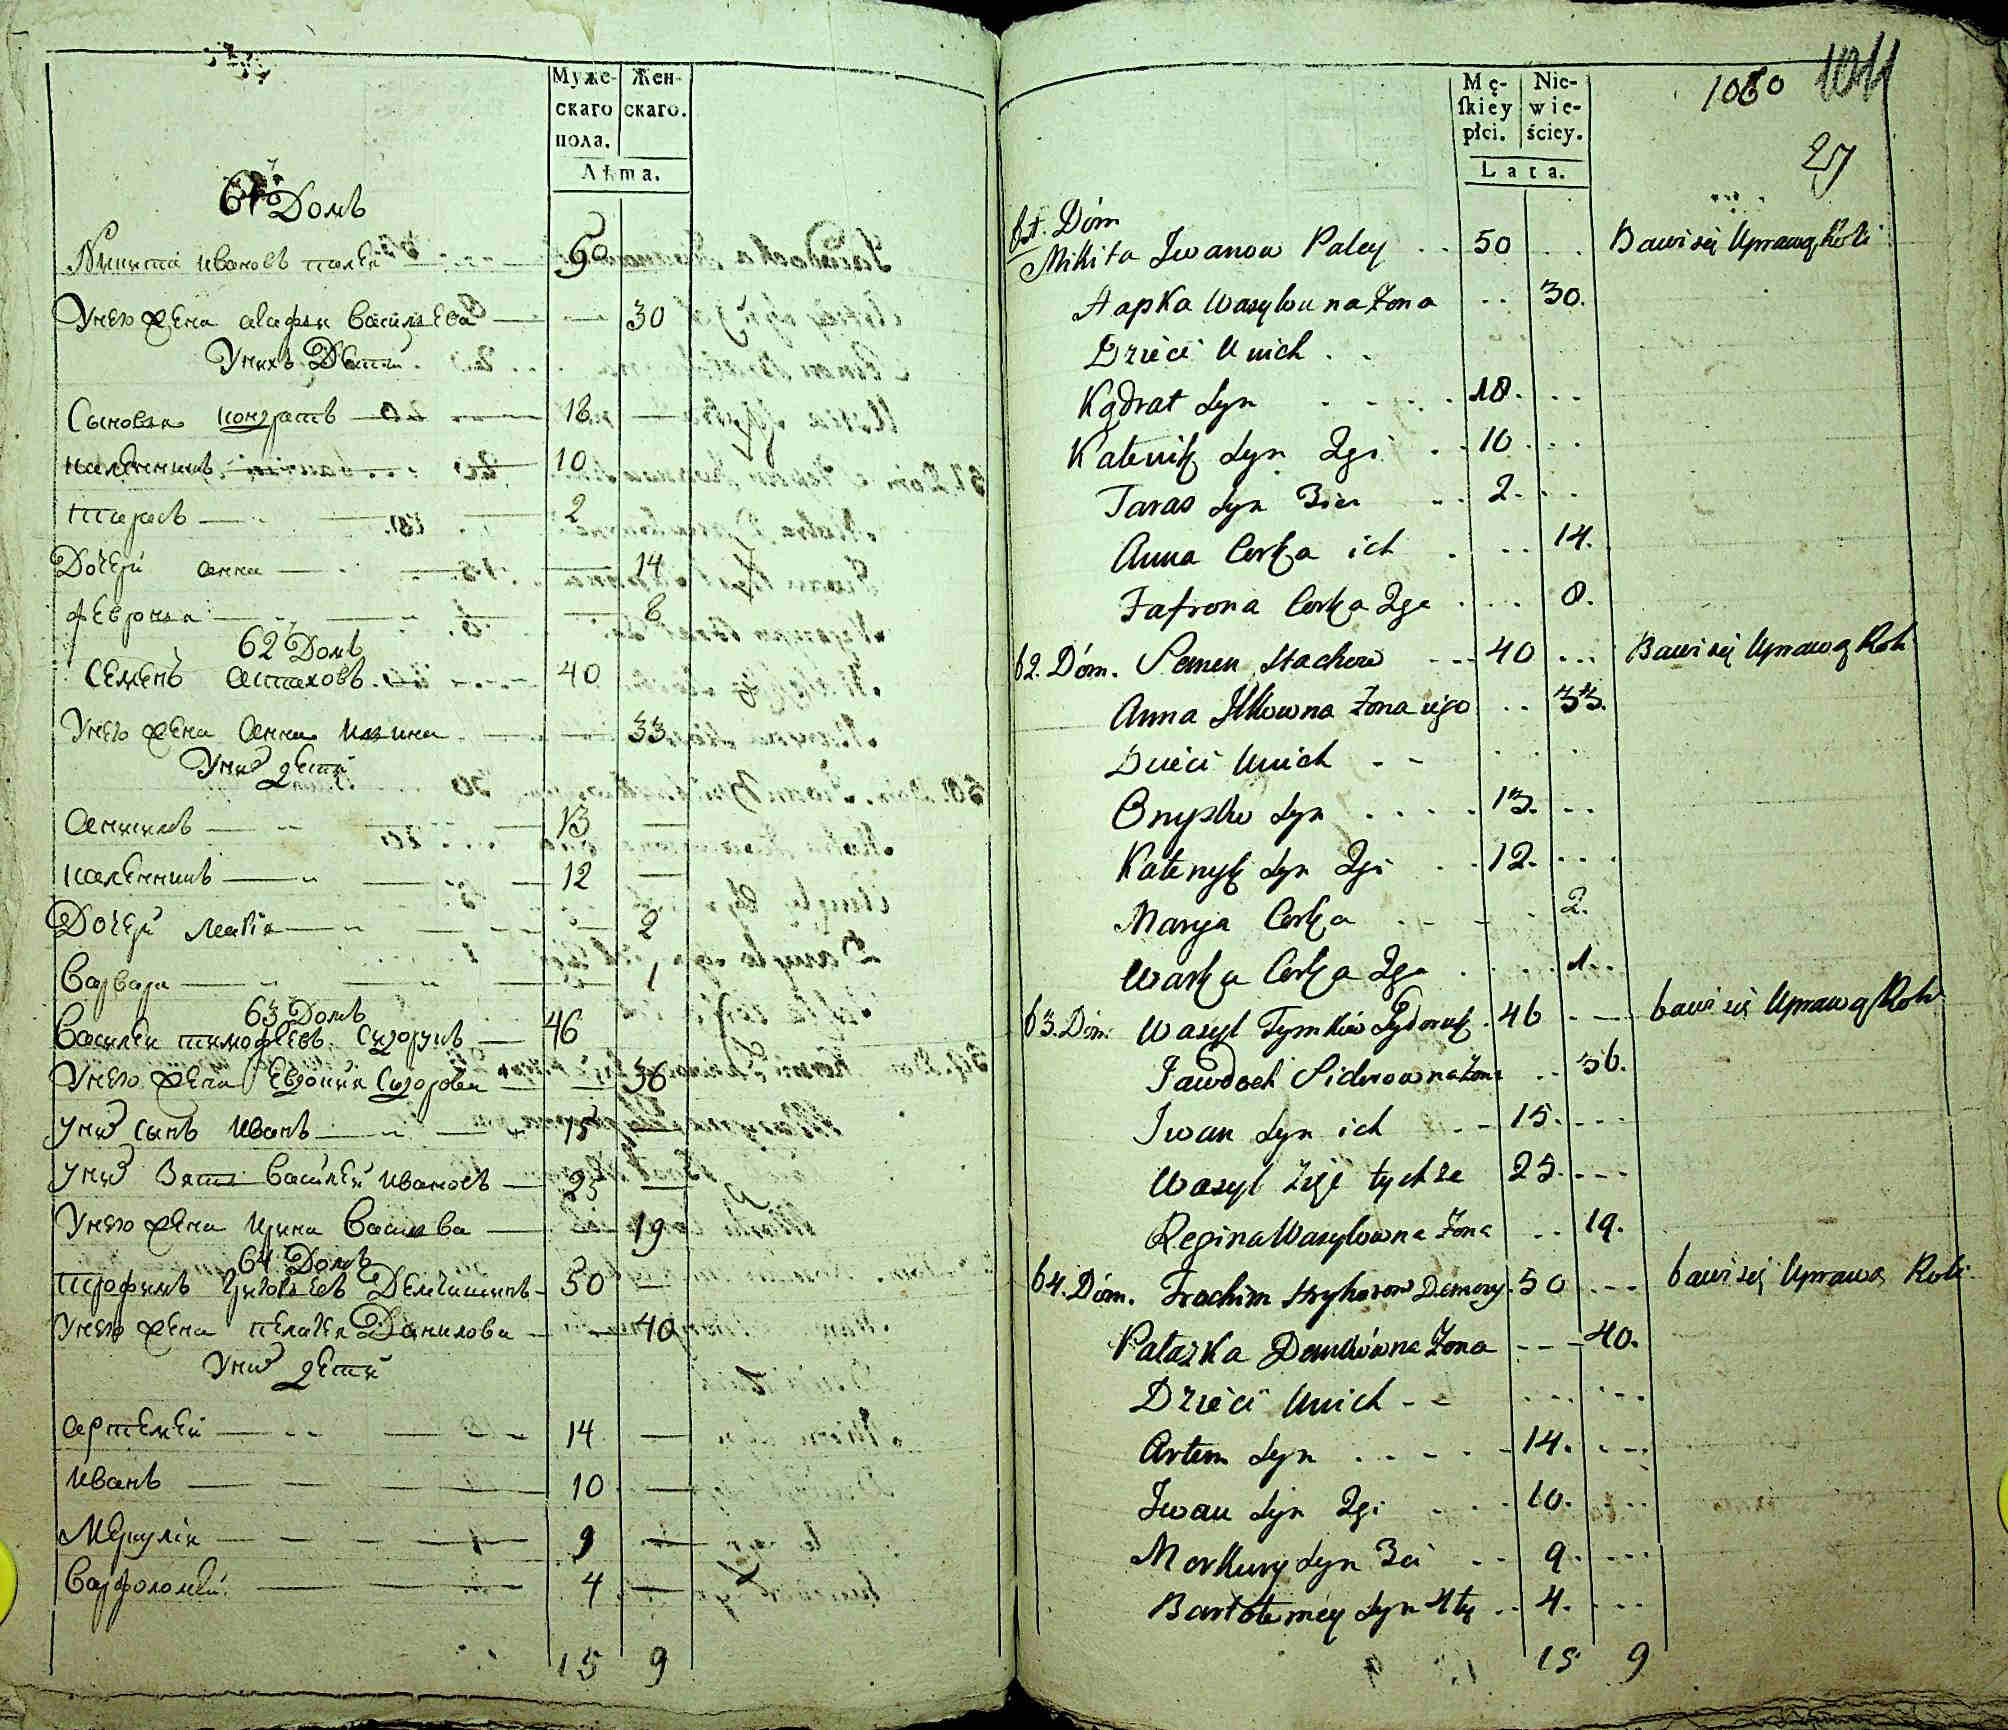 Муже- Жен-
скаго скаго.
пола.
Лѣта.
61 Домъ
Никита Ивановъ палей 50
Унего жена агафия василиева 30
Унихъ Дети
Сыновья кондратъ 18
каленникъ 10
тарасъ 2
Дочери анна 14
февронья 8
62 Домъ
Семенъ астаховъ 40
Унего жена анна ильина 33
Уних дети
Онисимъ 13
каленникъ 12
Дочери марія 2
варвара 1
63 Домъ
Василей тимофеевъ Сидорукъ 46
Унего жена Евдокия Сидорова 36
Уних сынъ Иванъ 15
Уних Зять василей Ивановъ 25
Унего жена Ирина василева 19
64 Домъ
трофимъ григорьевъ 50
Унего жена пелагея Данилова 40
Уних дети
артемей 14
Иванъ 10
Меркулій 9
варфоломей 4
15 9
Mę- Nie-
ſkiey wie-
płci. ściey.
Lata.
1060 1011
27
61. Dóm
Mikita Iwanow Paley 50 Bawi się Uprawą Roli
Hapka Wasylowna Żona 30.
Dzieci U nich
Kądrat Syn 18.
Kalenik Syn 2gi 10
Taras Syn 3ci 2.
Anna Corka ich 14.
Jafrona Corka 2ga 8.
62. Dóm. Semen Stachow 40 Bawi się Uprawą Roli
Anna Ilkowna Żona iego 33.
Dzieci U nich
Onysko Syn 13.
Kalenyk Syn 2gi 12.
Marya Corka 2.
Warka Corka 2ga 1.
63. Dóm. Wasyl Tymków Sydoruk 46 bawi się Uprawą Roli
Jawdoch Siderowna Żona 36.
Iwan Syn ich 15.
Wasyl Zięć tychże 25.
Regina Wasylowna Żona 19.
64. Dóm. Trochim Hryhorow 50 bawi się Uprawą Roli
Palazka Demkówna Żona 40.
Dzieci U nich
Artem Syn 14.
Iwan Syn 2gi 10.
Merkury Syn 3ci 9.
Bartołomey Syn 4ty 4.
15 9